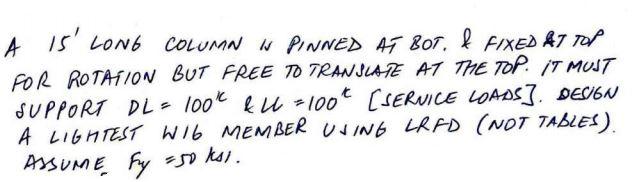 A 15' LONG COLUMN IS PINNED AT BOT. & FIXED AT TOP
FOR ROTATION BUT FREE TO TRANSLATE AT THE TOP. IT MUST
SUPPORT DL = 100ᵏ & LL = 100ᵏ [SERVICE LOADS]. DESIGN
A LIGHTEST W16 MEMBER USING LRFD (NOT TABLES).
ASSUME Fy = 50 ksi.